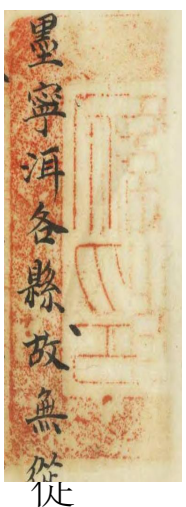 墨寧洱各縣故無從